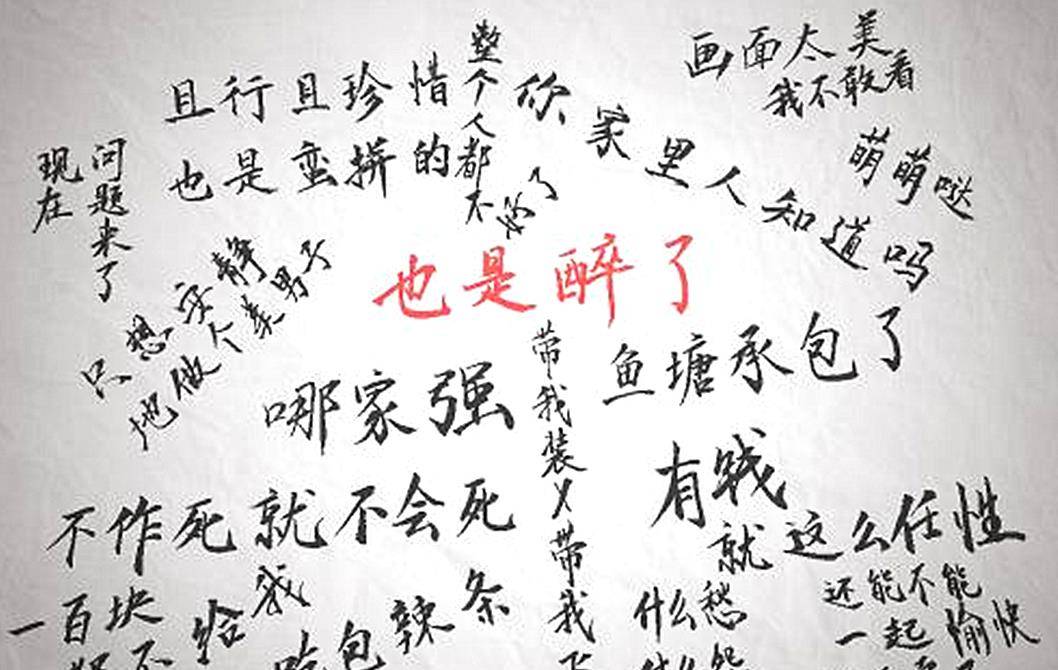 整个人都不好了
画面太美
我不敢看
且行且珍惜
你家里人知道吗
也是蛮拼的
萌萌哒
现在
问题来了
只想安静
地做个美男子
也是醉了
带我装X带我飞
鱼塘承包了
哪家强
有钱
就这么任性
不作死就不会死
还能不能
一起愉快
一百块
给我
吃包辣条
什么愁
什么怨